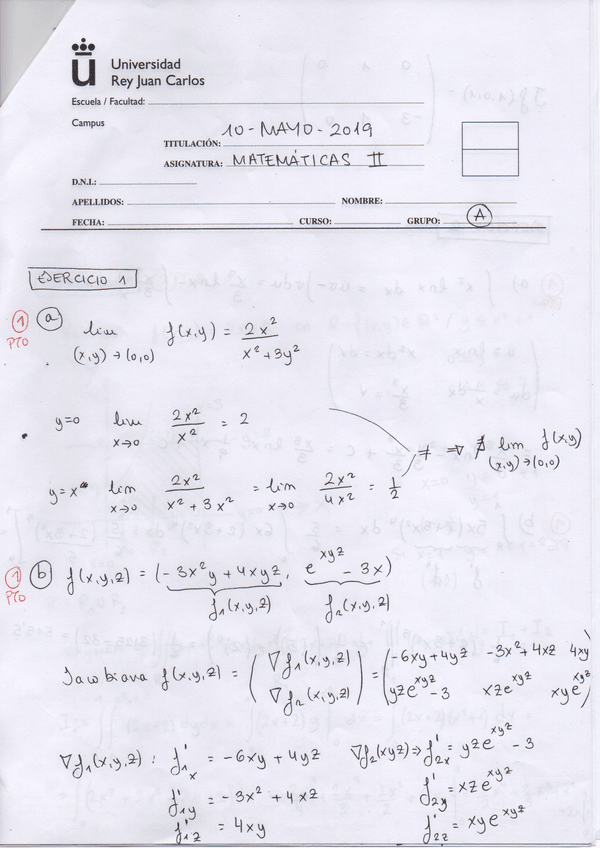 Universidad
Rey Juan Carlos
Escuela / Facultad:
Campus
TITULACIÓN: 10-MAYO-2019
ASIGNATURA: MATEMÁTICAS II
D.N.I.:
APELLIDOS: NOMBRE:
FECHA: CURSO: GRUPO: A
EJERCICIO 1
1 PTO a) lim (x,y)→(0,0) f(x,y) = 2x²/(x²+3y²)
y=0 lim x→0 2x²/x² = 2
≠ ⇒ ∄ lim (x,y)→(0,0) f(x,y)
y=x lim x→0 2x²/(x²+3x²) = lim x→0 2x²/4x² = 1/2
1 PTO b) f(x,y,z) = (-3x²y+4xyz, e^xyz - 3x)
f₁(x,y,z) f₂(x,y,z)
Jacobiana f(x,y,z) = (∇f₁(x,y,z) ∇f₂(x,y,z)) = (-6xy+4yz -3x²+4xz 4xy
yze^xyz-3 xze^xyz xye^xyz)
∇f₁(x,y,z): f'₁x = -6xy+4yz ∇f₂(xyz)⇒ f'₂x = yze^xyz - 3
f'₁y = -3x²+4xz f'₂y = xze^xyz
f'₁z = 4xy f'₂z = xye^xyz